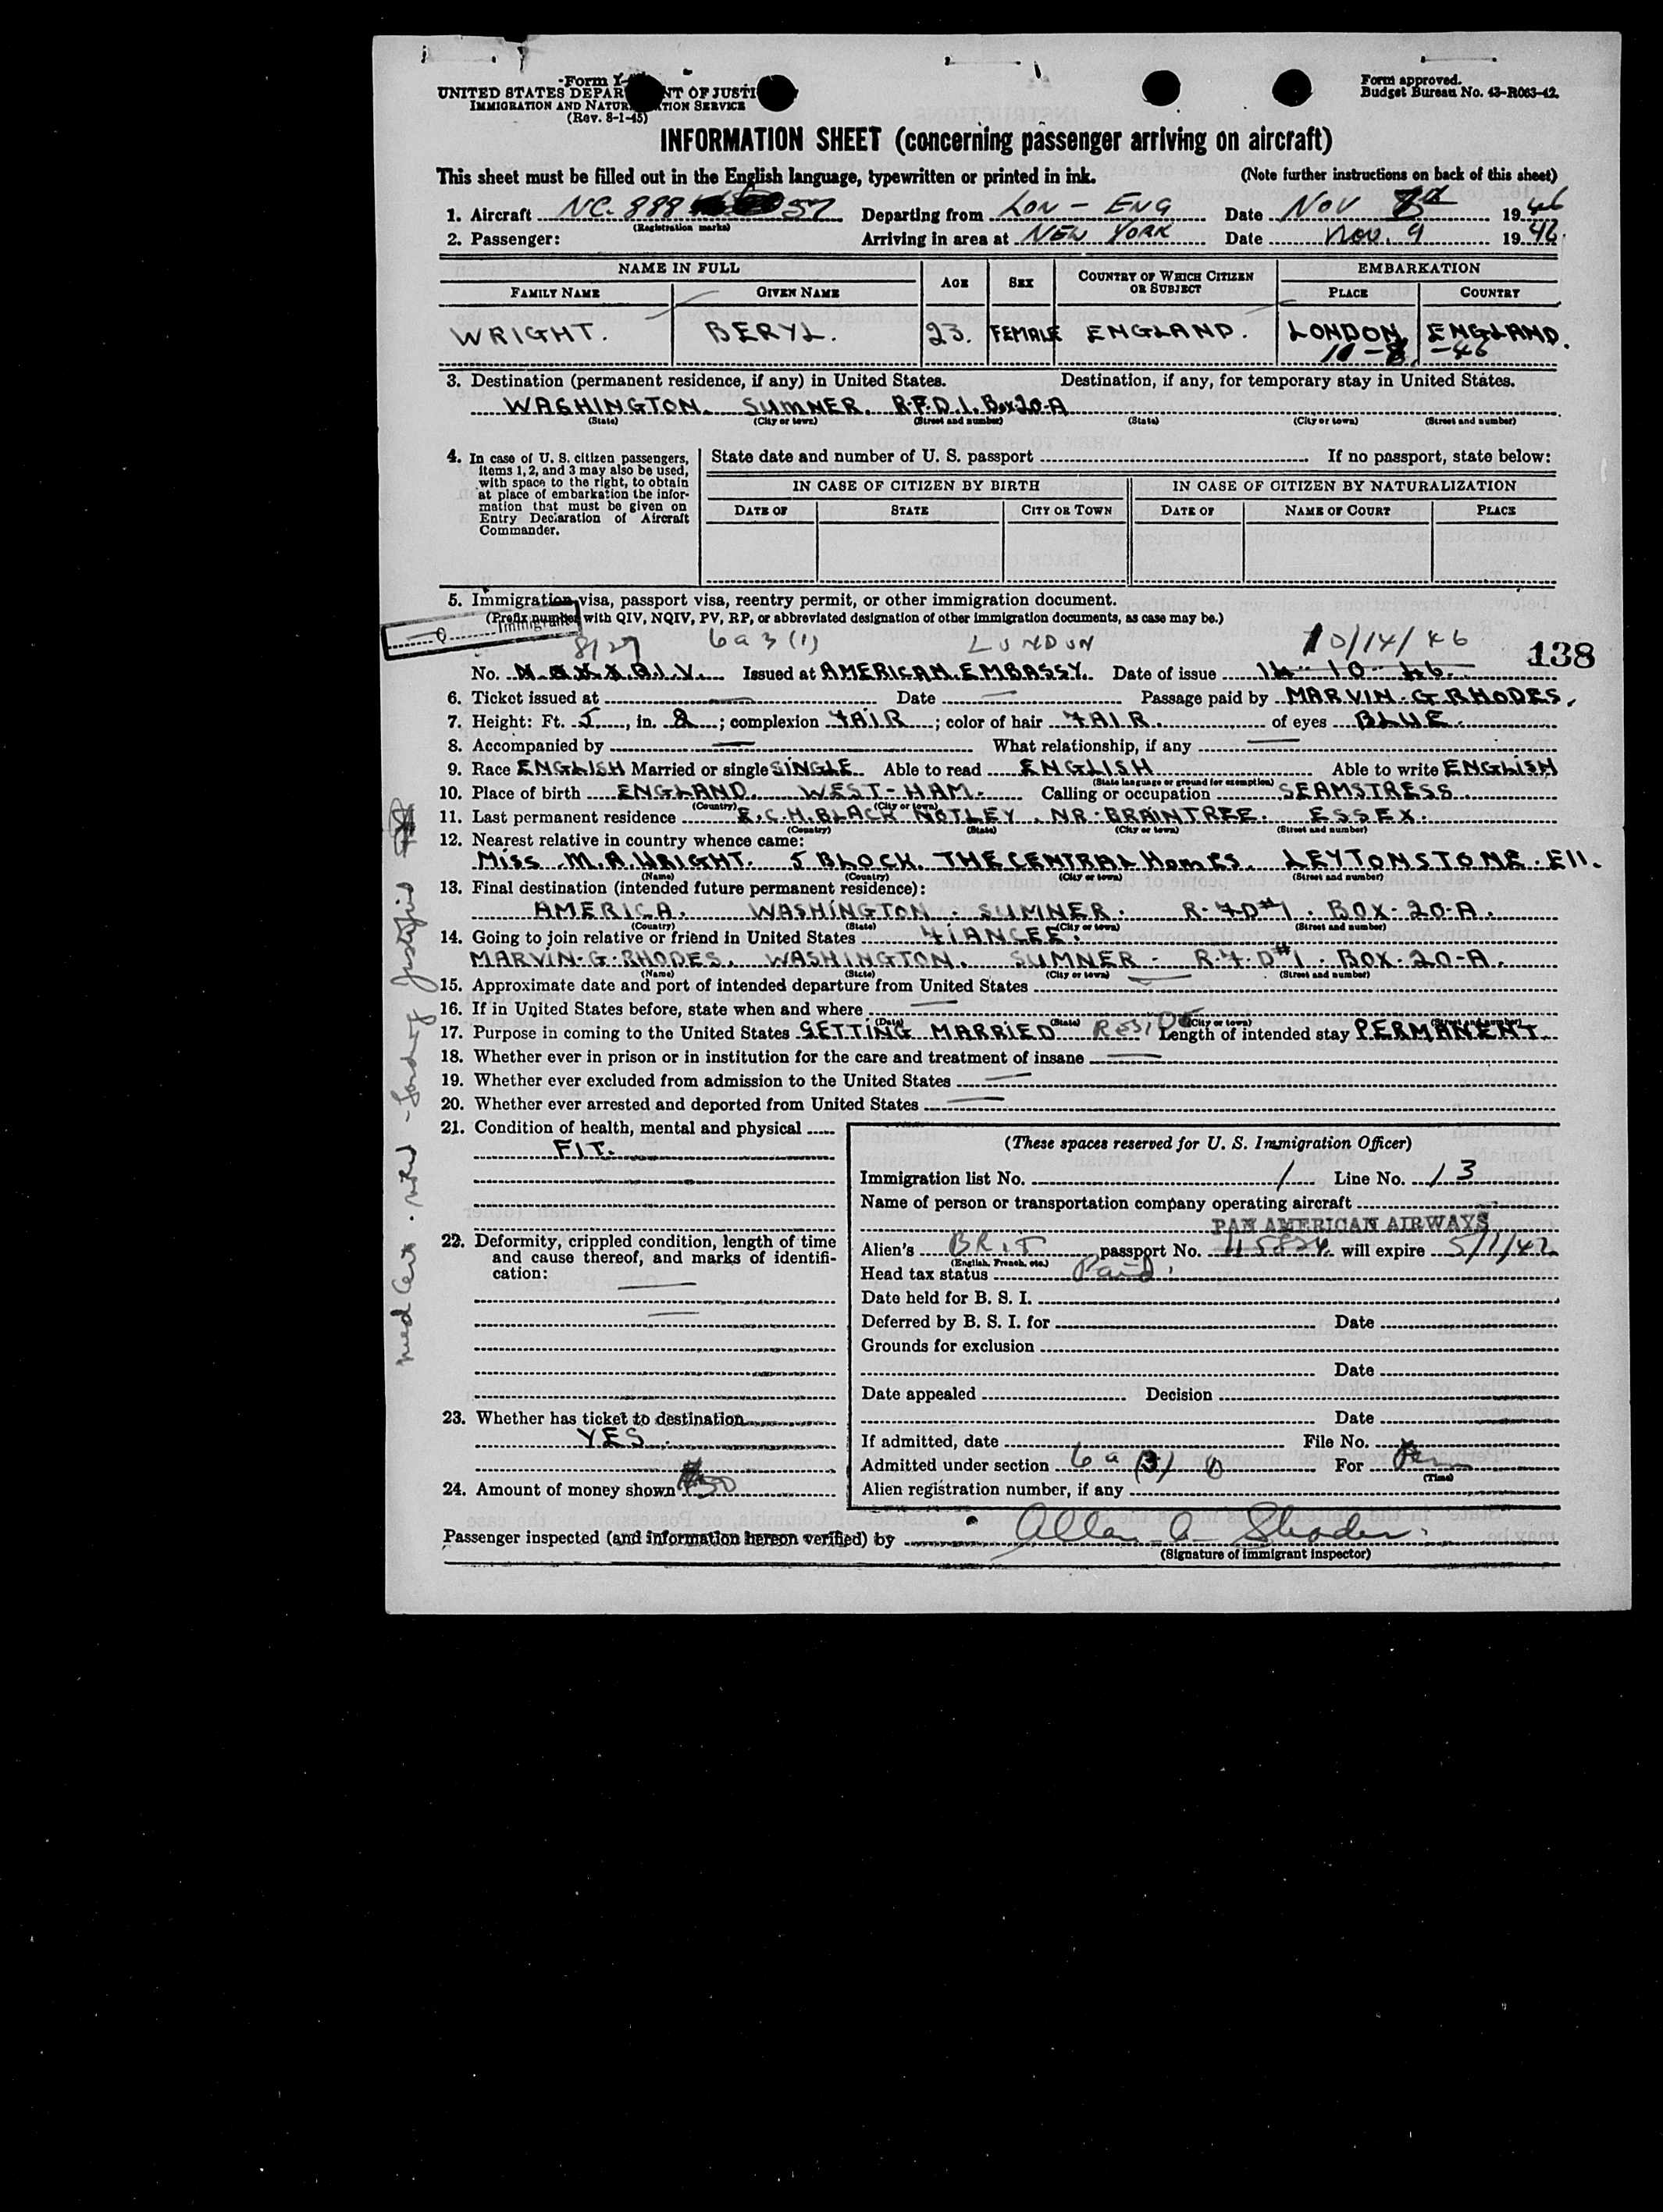 Form I-
UNITED STATES DEPAR NT OF JUSTI
IMMIGRATION AND NATUR TION SERVICE
(Rev. 8-1-45)
Form approved.
Budget Bureau No. 43-R063-42.
INFORMATION SHEET (concerning passenger arriving on aircraft)
This sheet must be filled out in the English language, typewritten or printed in ink. (Note further instructions on back of this sheet)
1. Aircraft NC-888 57 Departing from LON - ENG Date NOV 8th 1946
(Registration marks)
2. Passenger: Arriving in area at NEW YORK Date NOV. 9 1946.
NAME IN FULL AGE SEX COUNTRY OF WHICH CITIZEN OR SUBJECT EMBARKATION
FAMILY NAME GIVEN NAME PLACE COUNTRY
WRIGHT. BERYL. 23. FEMALE ENGLAND. LONDON ENGLAND.
-46
3. Destination (permanent residence, if any) in United States. Destination, if any, for temporary stay in United States.
WASHINGTON. SUMNER. R.F.D.1. Box 20-A
(State) (City or town) (Street and number) (State) (City or town) (Street and number)
4. In case of U. S. citizen passengers, items 1, 2, and 3 may also be used, with space to the right, to obtain at place of embarkation the information that must be given on Entry Declaration of Aircraft Commander.
State date and number of U. S. passport If no passport, state below:
IN CASE OF CITIZEN BY BIRTH IN CASE OF CITIZEN BY NATURALIZATION
DATE OF STATE CITY OR TOWN DATE OF NAME OF COURT PLACE
5. Immigration visa, passport visa, reentry permit, or other immigration document.
(Prefix number with QIV, NQIV, PV, RP, or abbreviated designation of other immigration documents, as case may be.)
Q Immigrant
8127 6a3(1) LONDON 10/14/46 138
No. Q.I.V. Issued at AMERICAN.EMBASSY. Date of issue 14-10-46.
6. Ticket issued at Date Passage paid by MARVIN.G.RHODES.
7. Height: Ft. 5, in. 2; complexion FAIR; color of hair FAIR. of eyes BLUE.
8. Accompanied by What relationship, if any
9. Race ENGLISH Married or single SINGLE. Able to read ENGLISH Able to write ENGLISH
(State language or ground for exemption)
10. Place of birth ENGLAND. WEST-HAM. Calling or occupation SEAMSTRESS.
(Country) (City or town)
11. Last permanent residence E.C.H.BLACK NOTLEY. NR.BRAINTREE. ESSEX.
(Country) (State) (City or town) (Street and number)
12. Nearest relative in country whence came:
Miss M.A.WRIGHT. J BLOCK. THE CENTRAL HOMES. LEYTONSTONE.E11.
(Name) (Country) (City or town) (Street and number)
13. Final destination (intended future permanent residence):
AMERICA. WASHINGTON. SUMNER. R.FD#1. BOX.20-A.
(Country) (State) (City or town) (Street and number)
14. Going to join relative or friend in United States FIANCEE.
MARVIN-G-RHODES. WASHINGTON. SUMNER - R.F.D#1. BOX.20-A.
(Name) (State) (City or town) (Street and number)
15. Approximate date and port of intended departure from United States
16. If in United States before, state when and where
(Date) (State) (City or town) (Street and number)
17. Purpose in coming to the United States GETTING MARRIED RESIDE Length of intended stay PERMANENT.
18. Whether ever in prison or in institution for the care and treatment of insane
19. Whether ever excluded from admission to the United States
20. Whether ever arrested and deported from United States
21. Condition of health, mental and physical
FIT.
22. Deformity, crippled condition, length of time and cause thereof, and marks of identification:
23. Whether has ticket to destination
YES.
24. Amount of money shown $50
(These spaces reserved for U. S. Immigration Officer)
Immigration list No. 1 Line No. 13
Name of person or transportation company operating aircraft
PAN AMERICAN AIRWAYS
Alien's BRIT passport No. will expire 5/1/47
(English, French, etc.)
Head tax status Paid
Date held for B. S. I.
Deferred by B. S. I. for Date
Grounds for exclusion
Date
Date appealed Decision
Date
If admitted, date File No.
Admitted under section 6a(3) For Perm
(Time)
Alien registration number, if any
Passenger inspected (and information hereon verified) by Allan
(Signature of immigrant inspector)
Med Cert. noted